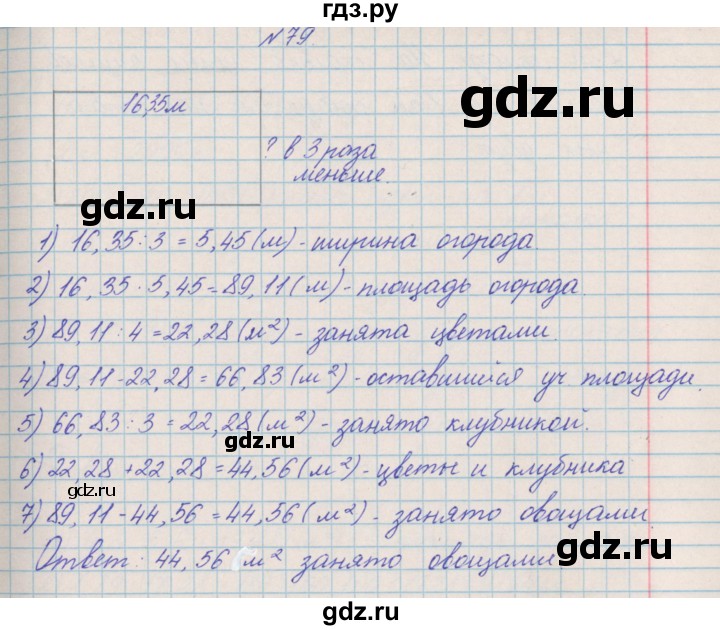 гдз.ру
N 79
gdz.ru
16,35 м
? в 3 роза
меньше.
gdz.ru
1) 16,35:3 = 5,45 (м) - ширина огорода.
2) 16,35 · 5,45 = 89,11 (м) - площадь огорода.
gdz.ru
3) 89,11:4 = 22,28 (м²) - занята цветами.
4) 89,11 - 22,28 = 66,83 (м²) - оставшийся уч площади.
5) 66,83:3 = 22,28 (м²) - занято клубникой.
gdz.ru
6) 22,28 + 22,28 = 44,56 (м²) - цветы и клубника
gdz.ru
7) 89,11 - 44,56 = 44,56 (м²) - занято овощами
gdz.ru
Ответ: 44,56 м² занято овощами
gdz.ru